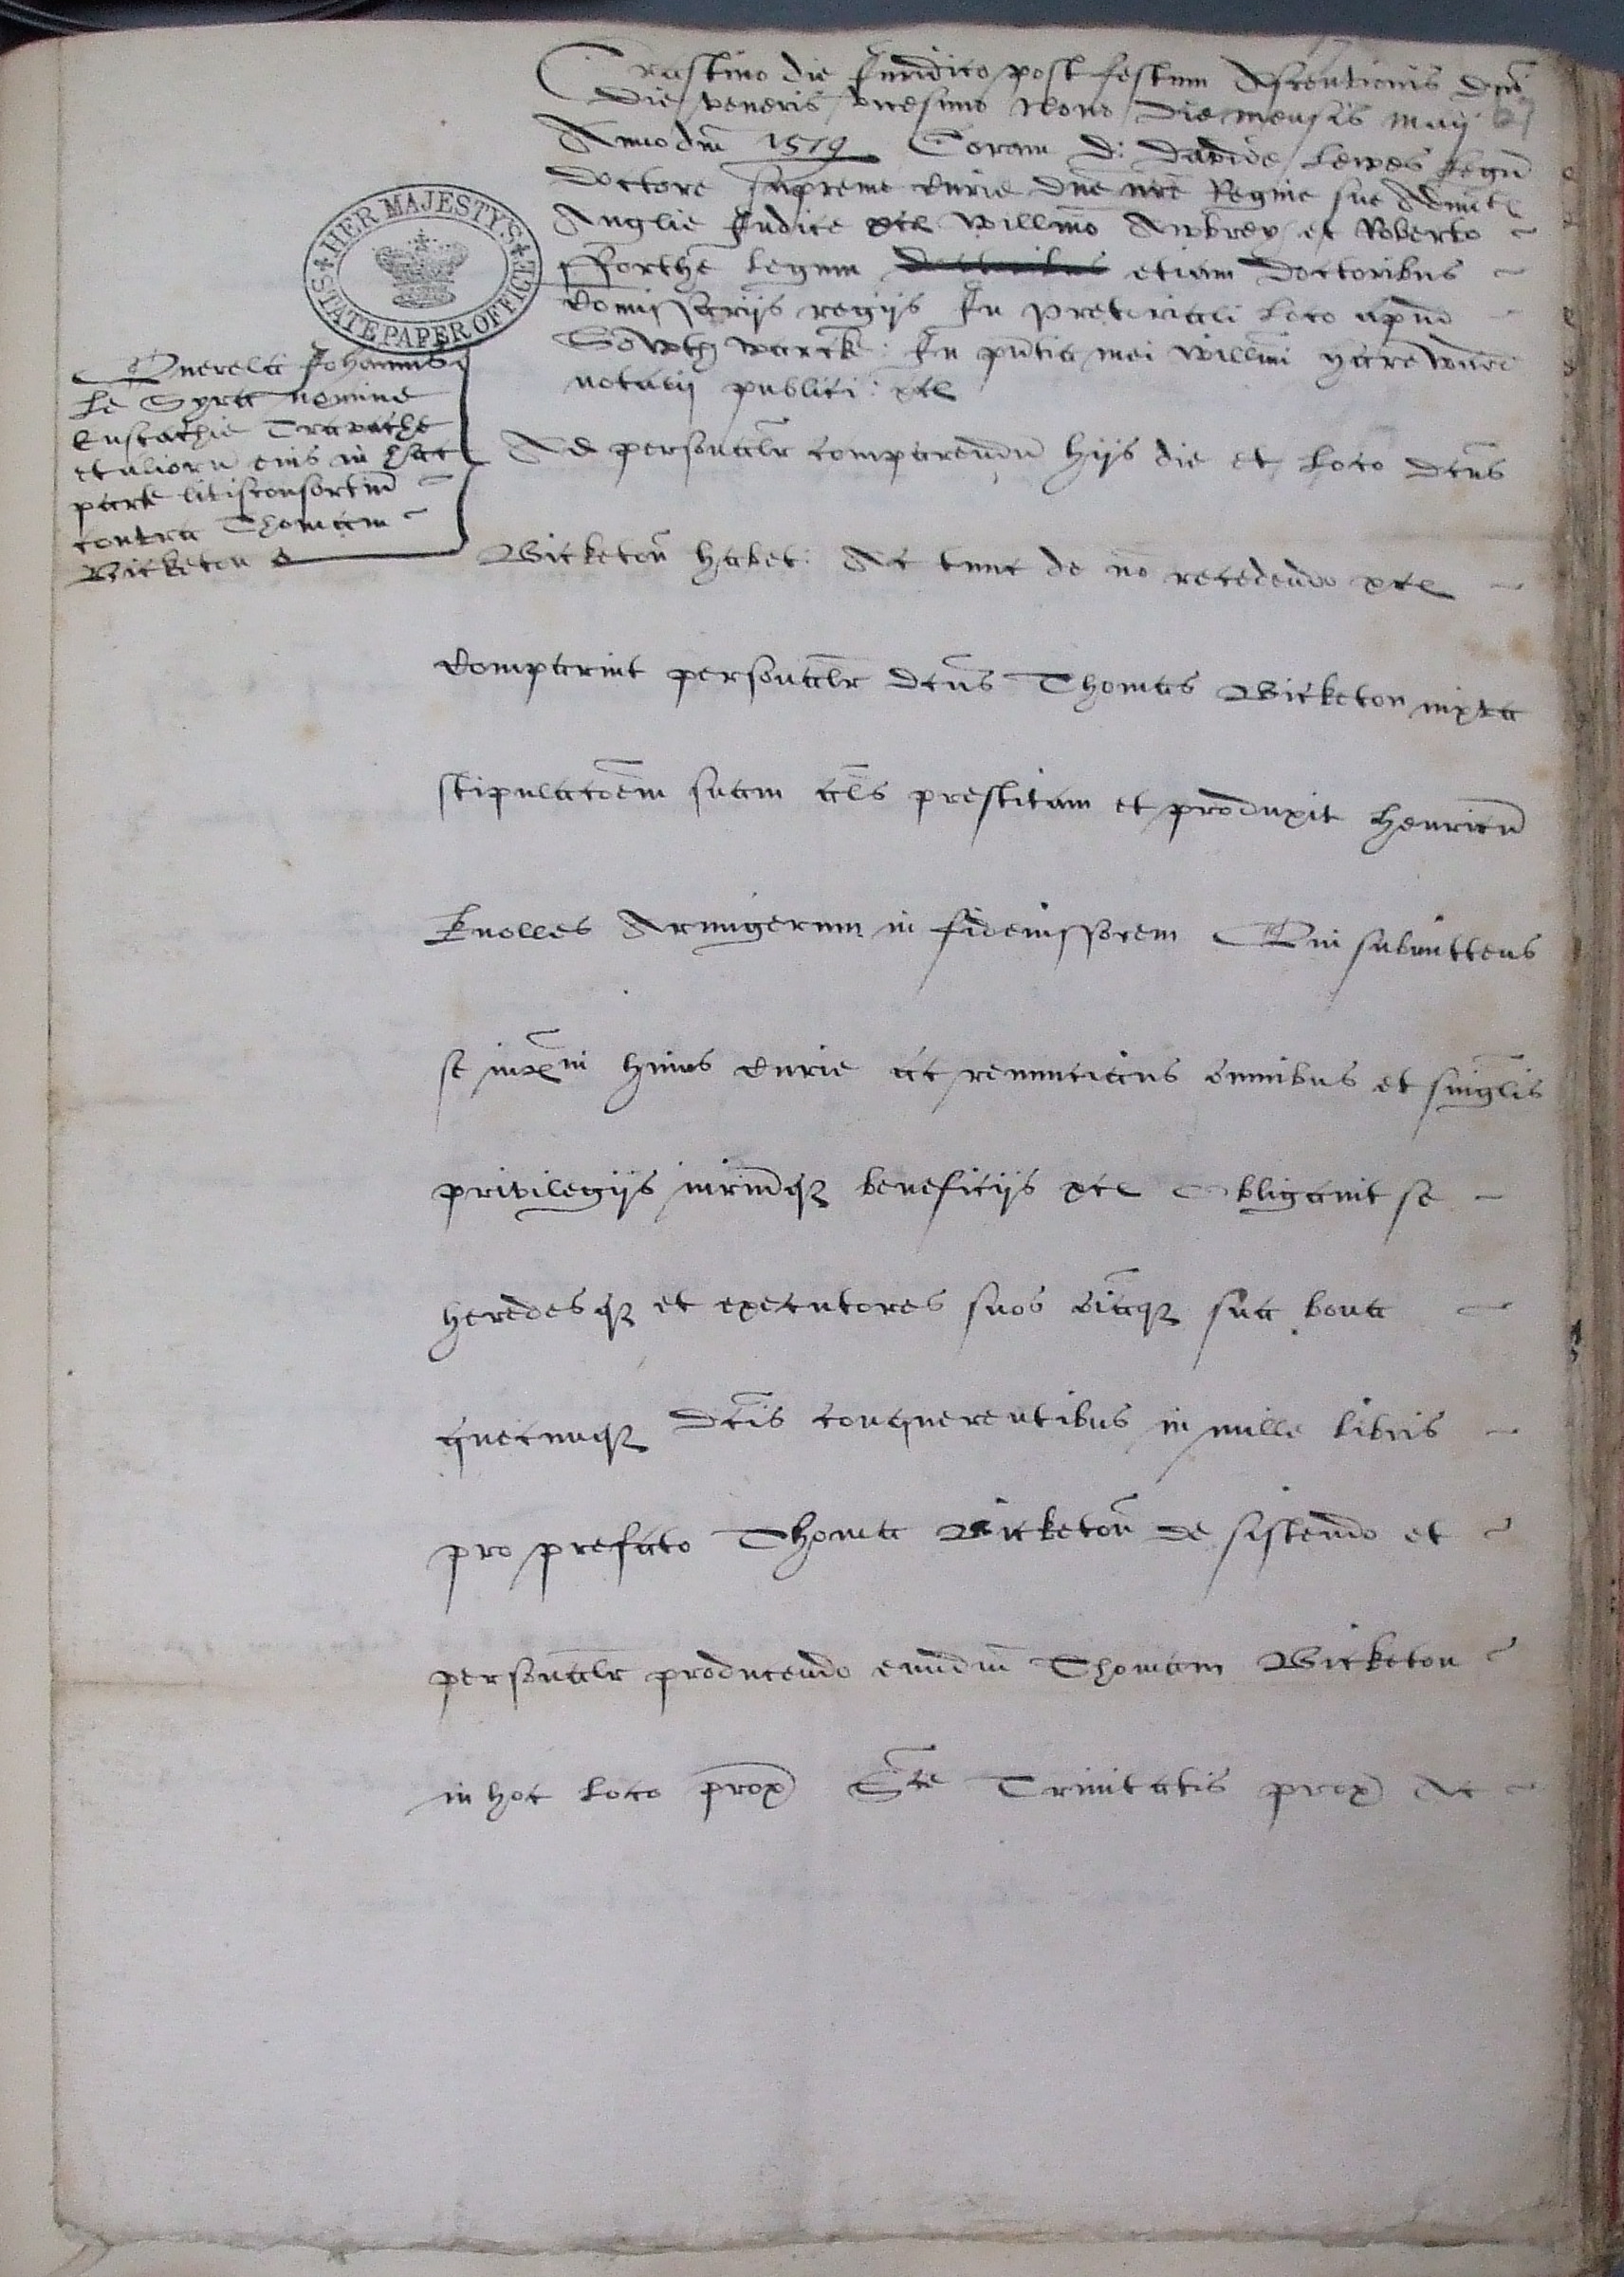 Crastino die Juridico post festum Ascentionis dni
die veneris vicesimo Nono die mensis maij
Anno dni 1579 Coram d: Davide Lewes legu
doctore supreme Curie dne nre Regine sue Admtis
Anglie Judice etc Willmo Awbrey et Roberto
fforthe legum doctoribus etiam doctoribus
Comissarijs regijs In pretoriali loco apud
Sowthwarck: In pntia mei Willmi Harewarde
notarij publici: etc
HER MAJESTY'S STATE PAPER OFFICE
Querela Johannis
Le Syra nomine
Eustachie Travache
et alioru eius in hac
parte litisconsortium
contra Thomam
Bicketon
Ad personalr comparendu hijs die et loco dcus
Bicketon habet: Ac tunc de no recedendo etc
Comparuit personalr dcus Thomas Bicketon iuxta
stipulacoem suam als prestitam et produxit henricu
Knolles Armigerum in fideiussorem Qui submittens
se iurxni huius Curie ac renuncians omnibus et singlis
privilegijs iuriumq beneficijs etc Obligavit se
heredesq et executores suos oiaq sua bona
quecunq dcis conquerentibus in mille libris
pro prefato Thoma Bicketon de sistendo et
personalr producendo eundm Thomam Bicketon
in hoc loco prox Ste Trinitatis prox Ac